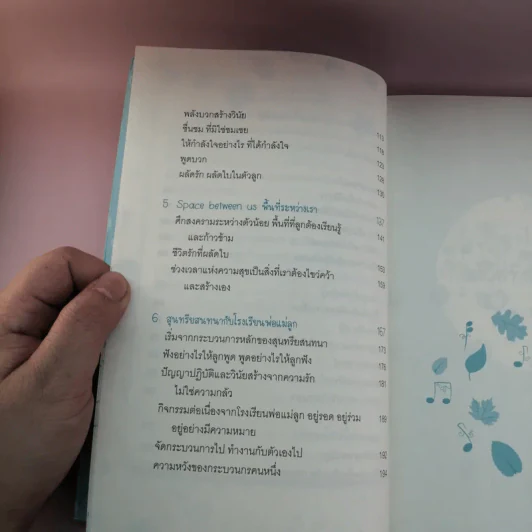 พลังบวกสร้างวินัย
ชื่นชม ที่มิใช่ชมเชย
ให้กำลังใจอย่างไร ที่ได้กำลังใจ
พูดบวก
ผลัดรัก ผลัดใบในตัวลูก
5 Space between us พื้นที่ระหว่างเรา 137
ศึกสงครามระหว่างตัวน้อย พื้นที่ที่ลูกต้องเรียนรู้ 141
และก้าวข้าม
ชีวิตรักที่ผลัดใบ
ช่วงเวลาแห่งความสุขเป็นสิ่งที่เราต้องไขว่คว้า
และสร้างเอง
6 สุนทรียสนทนากับโรงเรียนพ่อแม่ลูก 167
เริ่มจากกระบวนการหลักของสุนทรียสนทนา
ฟังอย่างไรให้ลูกพูด พูดอย่างไรให้ลูกฟัง
ปัญญาปฏิบัติและวินัยสร้างจากความรัก 181
ไม่ใช่ความกลัว
กิจกรรมต่อเนื่องจากโรงเรียนพ่อแม่ลูก อยู่รอด อยู่ร่วม
อยู่อย่างมีความหมาย
จัดกระบวนการไป ทำงานกับตัวเองไป
ความหวังของกระบวนกรคนหนึ่ง 194